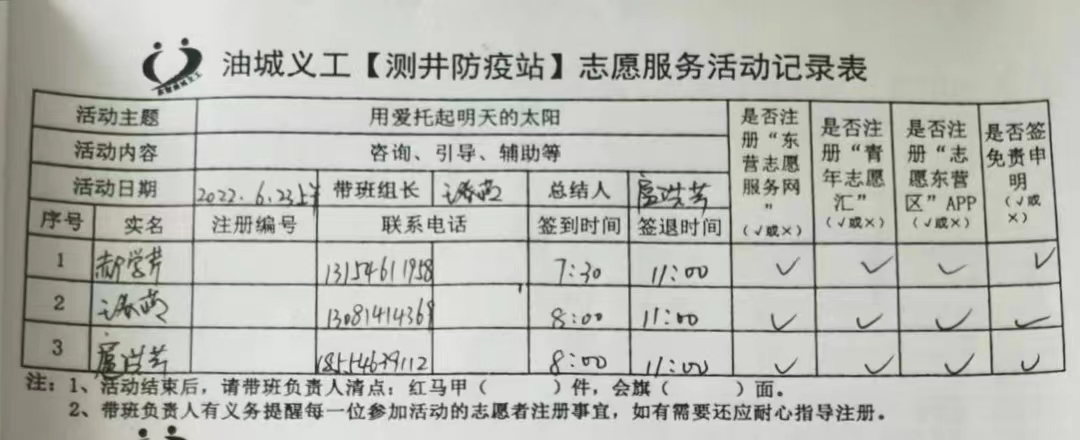 油城义工【测井防疫站】志愿服务活动记录表
活动主题 用爱托起明天的太阳 是否注册“东营志愿服务网”（√或×） 是否注册“青年志愿汇”（√或×） 是否注册“志愿东营区”APP（√或×） 是否签免责申明（√或×）
活动内容 咨询、引导、辅助等
活动日期 2022.6.23上午 带班组长 王春燕 总结人
序号 实名 注册编号 联系电话 签到时间 签退时间
1 郝学芹 13154611958 7:30 11:00 √ √ √ √
2 王春燕 13081414369 8:00 11:00 √ √ √ √
3 18554639112 8:00 11:00 √ √ √ √
注：1、活动结束后，请带班负责人清点：红马甲（ ）件，会旗（ ）面。
2、带班负责人有义务提醒每一位参加活动的志愿者注册事宜，如有需要还应耐心指导注册。